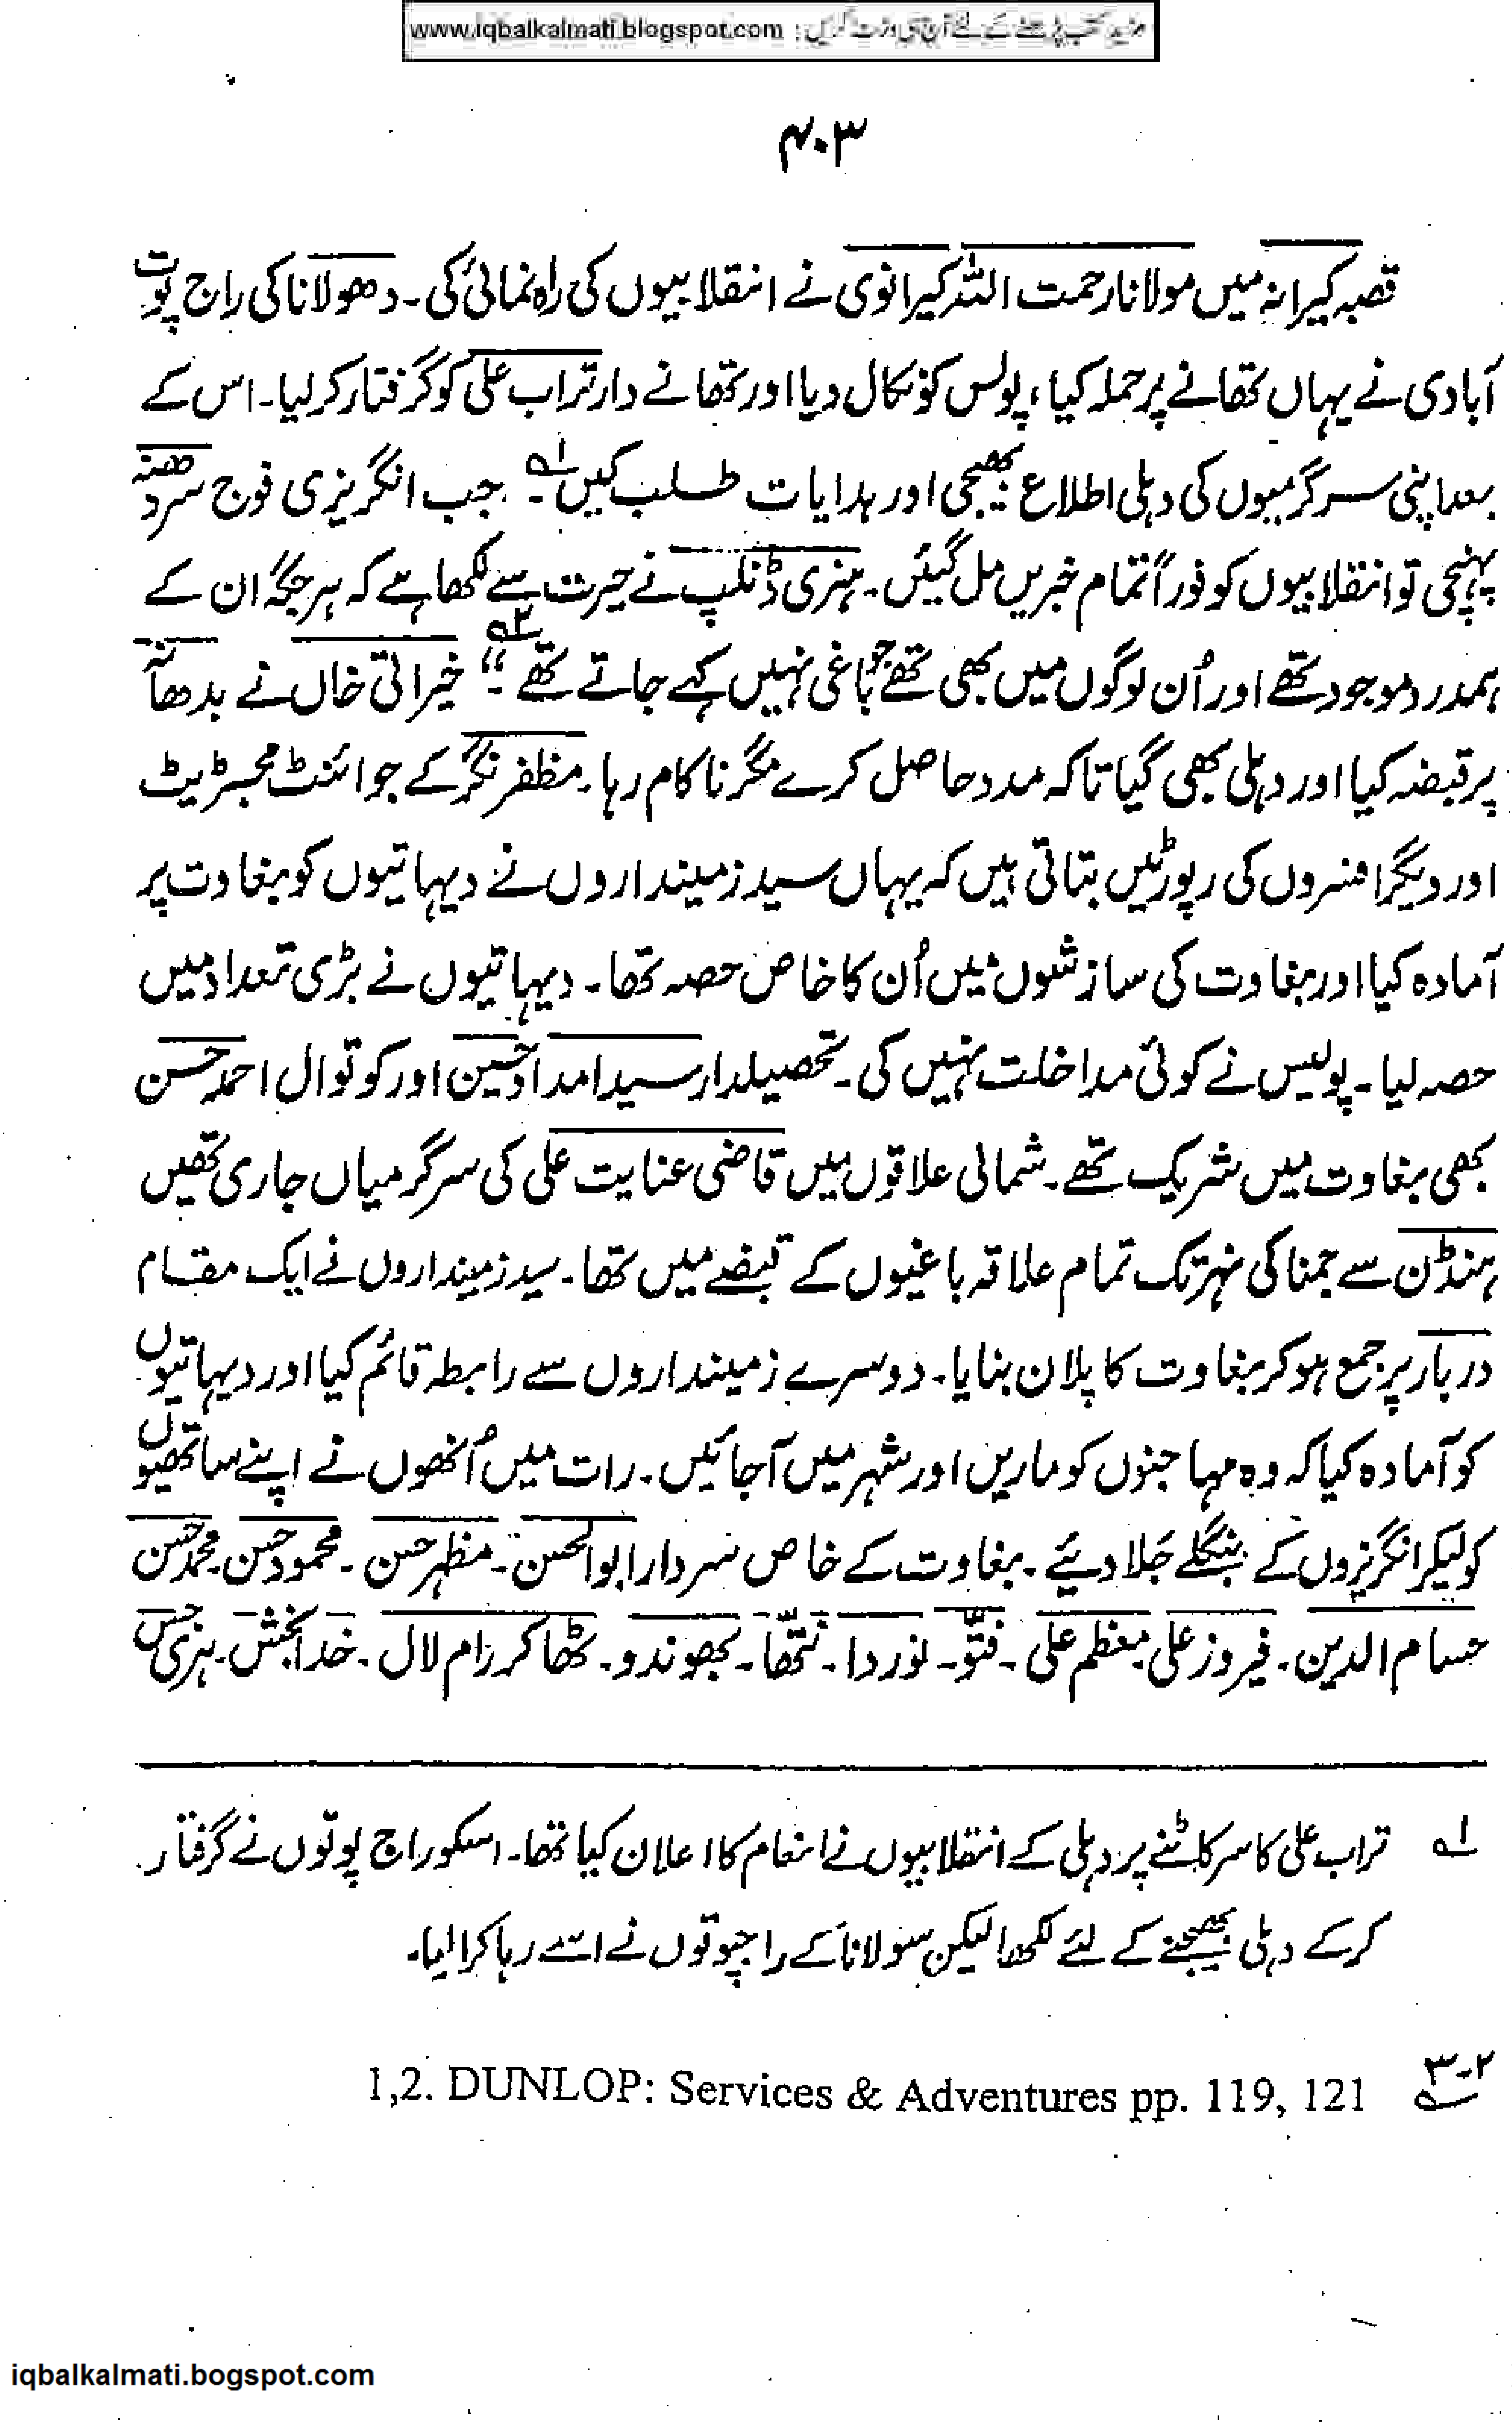 مزید کتب پڑھنے کے لئے آج ہی وزٹ کریں : www.iqbalkalmati.blogspot.com
۴۰۳
قصبہ کیرانہ میں مولانا رحمت اللہ کیرانوی نے انقلابیوں کی راہ نمائی کی۔ دھولانا کی راج پوت
آبادی نے یہاں تھانے پر حملہ کیا، پولس کو نکال دیا اور تھانے دار تراب علی کو گرفتار کر لیا۔ اس کے
بعد اپنی سرگرمیوں کی دہلی اطلاع بھیجی اور ہدایات طلب کیں۔ ۱ جب انگریزی فوج سردھنہ
پہنچی تو انقلابیوں کو فوراً تمام خبریں مل گئیں۔ ہنری ڈنلپ نے حیرت سے لکھا ہے کہ ہر جگہ ان کے
ہمدرد موجود تھے اور اُن لوگوں میں بھی تھے جو باغی نہیں کہے جاتے تھے۔“ ۲ خیراتی خاں نے بدھانہ
پر قبضہ کیا اور دہلی بھی گیا تاکہ مدد حاصل کرے مگر ناکام رہا۔ مظفر نگر کے جوائنٹ مجسٹریٹ
اور دیگر افسروں کی رپورٹیں بتاتی ہیں کہ یہاں سید زمینداروں نے دیہاتیوں کو بغاوت پر
آمادہ کیا اور بغاوت کی سازشوں میں اُن کا خاص حصہ تھا۔ دیہاتیوں نے بڑی تعداد میں
حصہ لیا۔ پولیس نے کوئی مداخلت نہیں کی۔ تحصیلدار سید امداد حسین اور کوتوال احمد حسن
بھی بغاوت میں شریک تھے۔ شمالی علاقوں میں قاضی عنایت علی کی سرگرمیاں جاری تھیں
ہنڈن سے جمنا کی نہر تک تمام علاقہ باغیوں کے قبضے میں تھا۔ سید زمینداروں نے ایک مقام
دربار پر جمع ہو کر بغاوت کا پلان بنایا۔ دوسرے زمینداروں سے رابطہ قائم کیا اور دیہاتیوں
کو آمادہ کیا کہ وہ مہاجنوں کو ماریں اور شہر میں آجائیں۔ رات میں اُنھوں نے اپنے ساتھیوں
کو لیکر انگریزوں کے بنگلے جَلا دیئے۔ بغاوت کے خاص سردار ابوالحسن۔ مظہر حسن۔ محمود حسن۔ محمد حسن
حسام الدین۔ فیروز علی معظم علی۔ فتّو۔ نور دا۔ نتھّا۔ بھوندو۔ ٹھاکر رام لال۔ خدا بخش۔
۱ تراب علی کا سر کاٹنے پر دہلی کے انقلابیوں نے انعام کا اعلان کیا تھا۔ اسکو راج پوتوں نے گرفتار
کرکے دہلی بھیجنے کے لئے لکھا لیکن سولانا کے راجپوتوں نے اسے رہا کرا لیا۔
۲-۳ 1,2. DUNLOP: Services & Adventures pp. 119, 121
iqbalkalmati.bogspot.com